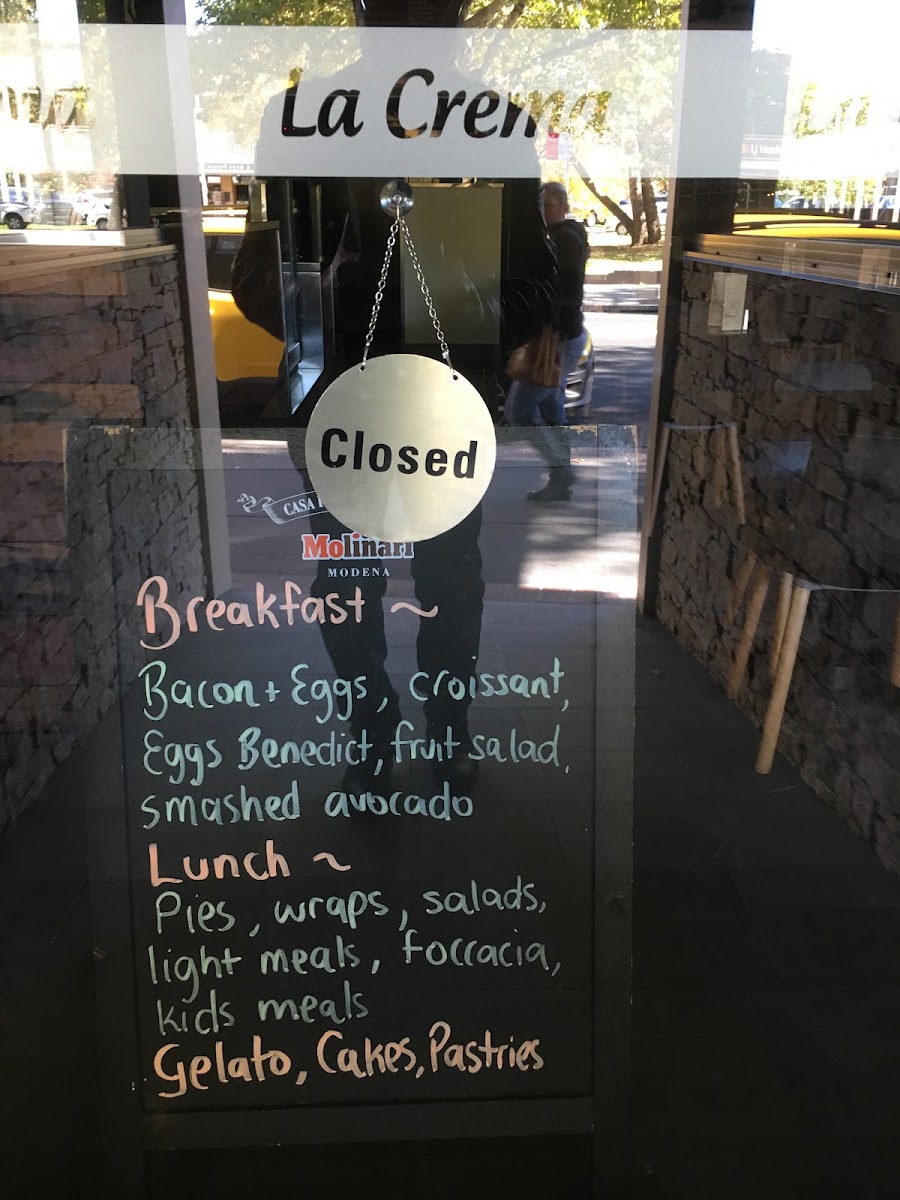 La Crema
Closed
CASA
Molinari
MODENA
Breakfast ~
Bacon + Eggs, croissant,
Eggs Benedict, fruit salad,
smashed avocado
Lunch ~
Pies, wraps, salads,
light meals, foccacia,
kids meals
Gelato, Cakes, Pastries